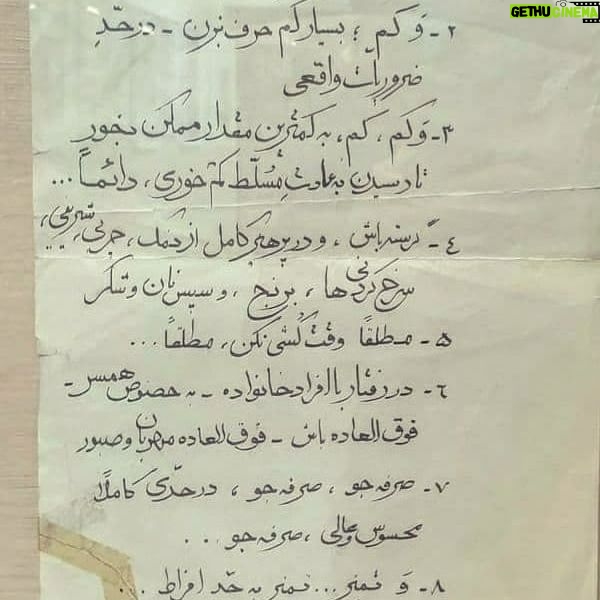 GETHUCINEMA
۲- وَ کم ؛ بسیار کم حرف بزن - در حدِّ
ضروریات واقعی
۳- وَ کم ، کم ، به کمترین مقدار ممکن بخور
تا رسیدن به عادتِ مُسلّط کم خوری ، دائماً ...
٤- گرسنه باش ، و در پرهیز کامل از نمک ، چربی ، شیرینی ،
سرخ کردنی ها ، برنج ، و سپس نان و شکر
۵- مطلقاً وقت کُشی نکن ، مطلقاً ...
٦- در رفتار با افراد خانواده - به خصوص همسر -
فوق العاده باش - فوق العاده مهربان و صبور
۷- صرفه جو ، صرفه جو ، در حدّی کاملاً
محسوس و عالی ، صرفه جو ...
۸- وَ تمیز ... تمیز به حدّ افراط ...